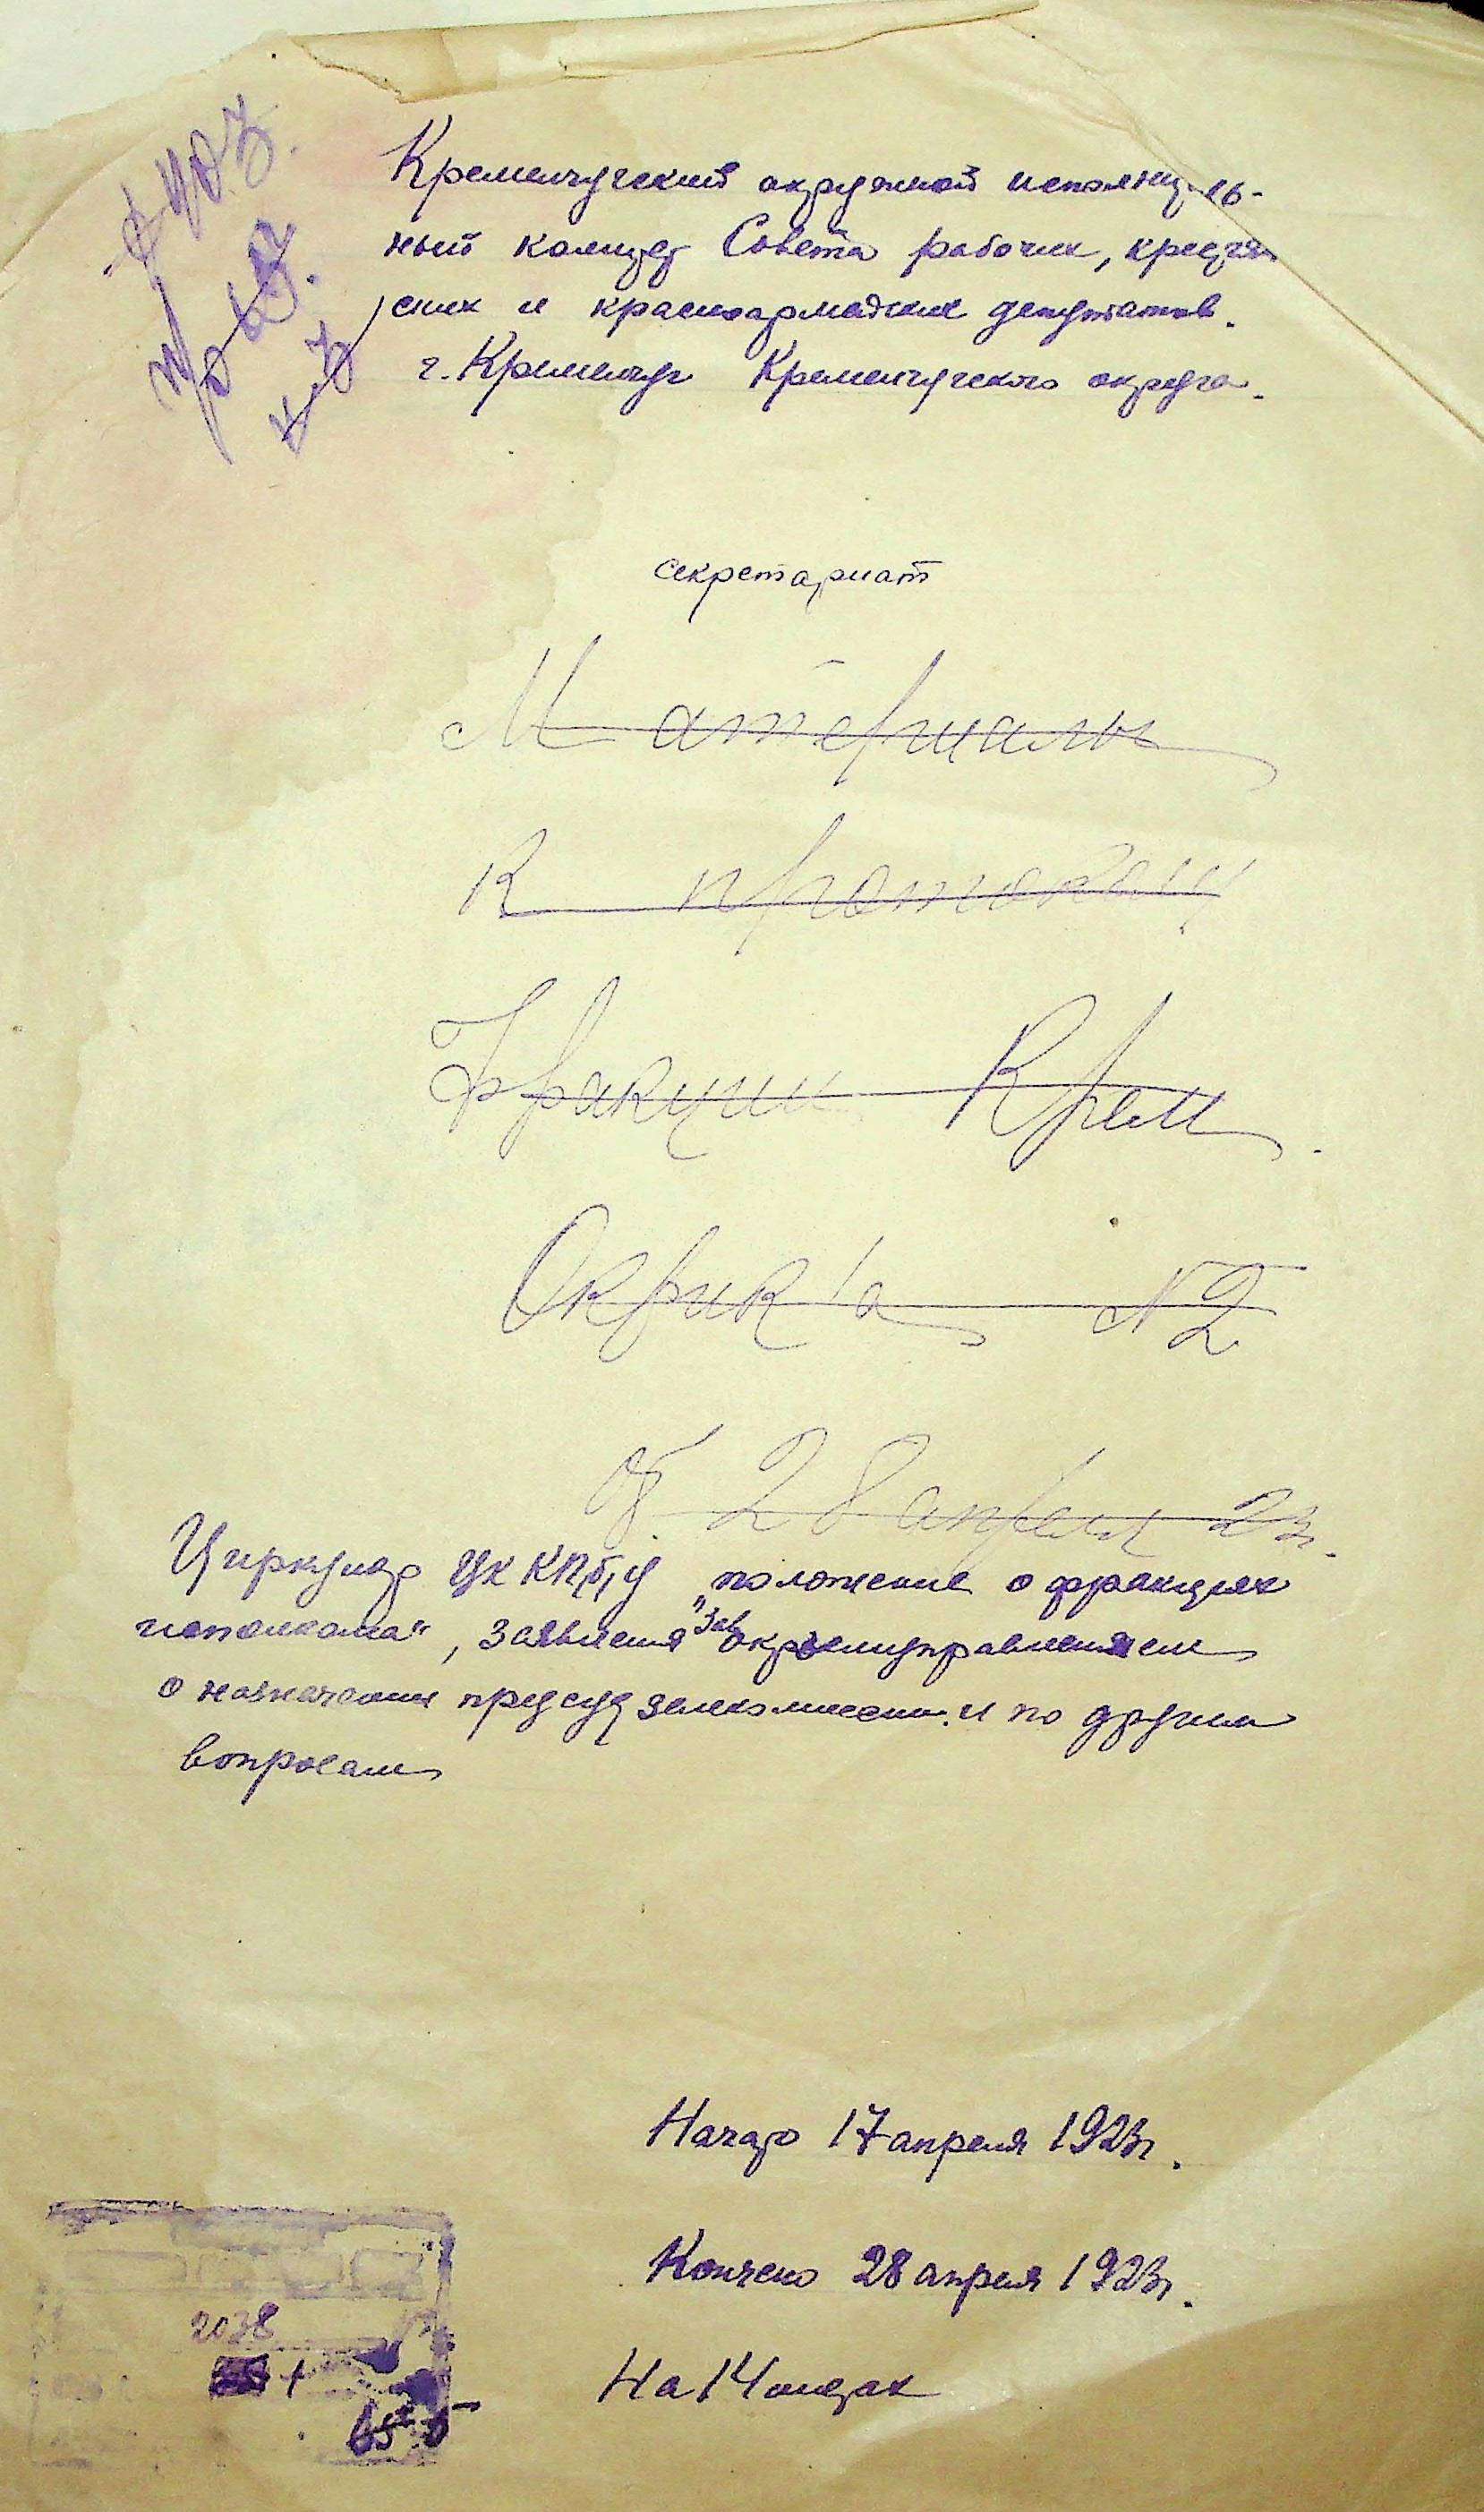 Кременчугский окружной исполнитель-
ный комитет Совета рабочих, крестьян
ских и красноармейских депутатов.
г. Кременчуг Кременчугского округа.
секретариат
Материалы
К протоколу
Фракции Крем.
Окрик'а № 2
от 28 апреля 23г.
Циркуляр ЦК КП(б)У „положение о фракциях
исполкома“, заявления Зав окрземуправлением
о назначении пред суд земкомиссии и по другим
вопросам
Начато 17 апреля 1923г.
Кончено 28 апреля 1923г.
На 14 листах
2038
1